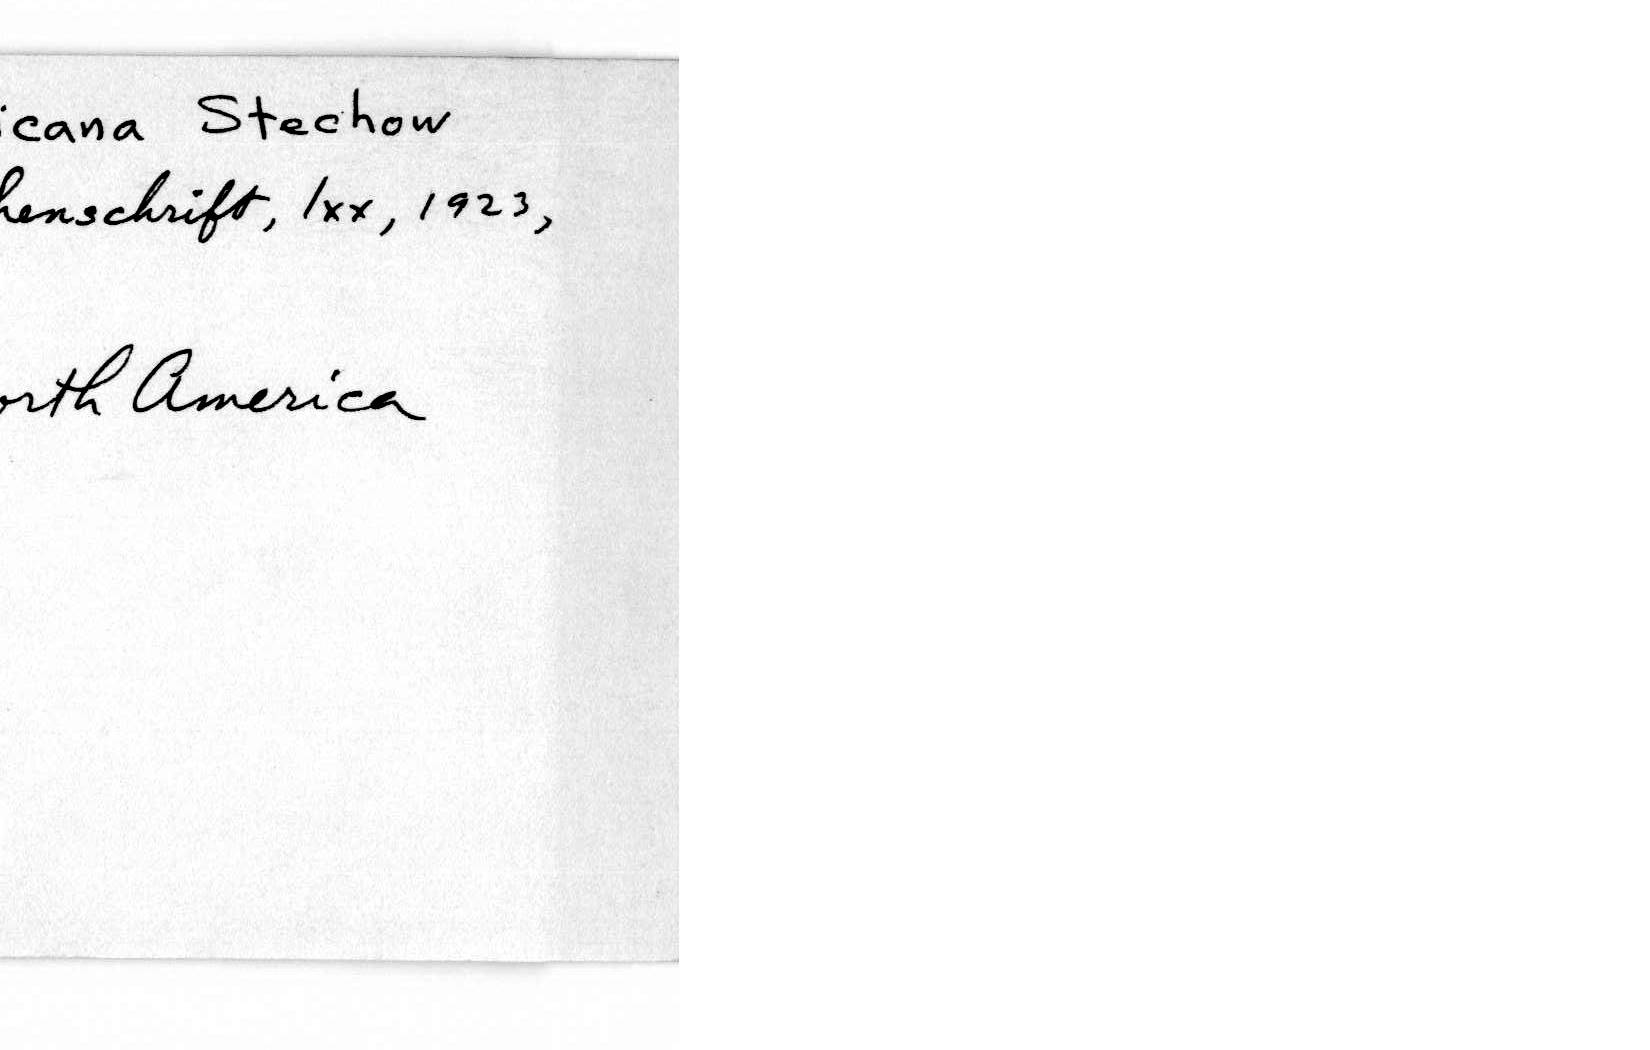 icana Stechow
henschrift, lxx, 1923,
orth America